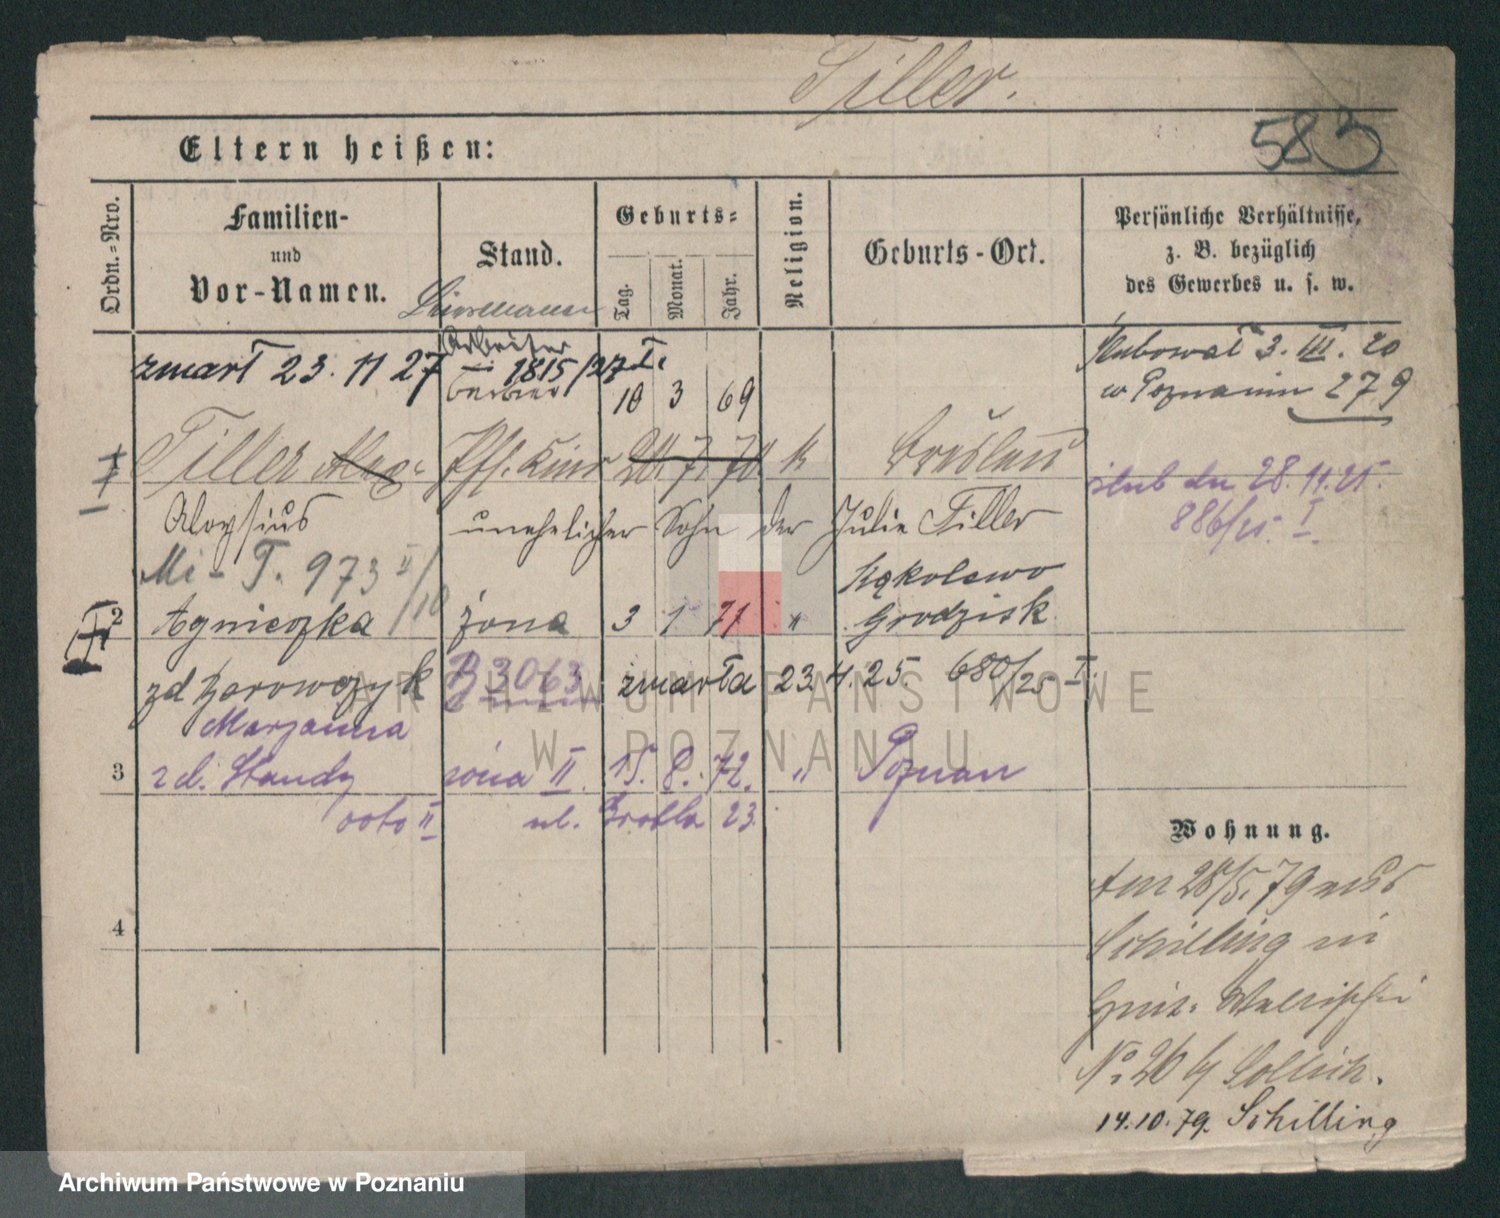 Tiller.
583
Eltern heißen:
Ordn.-Nro.
Familien-
und
Vor-Namen.
Stand.
Geburts-
Tag.
Monat.
Jahr.
Religion.
Geburts-Ort.
Persönliche Verhältnisse,
z. B. bezüglich
des Gewerbes u. s. w.
Arbeiter
zmarł 23. 11 27 1815/27 I.
10 3 69
3. III. 20
w Poznaniu 279
1 Tiller Alex. 20. 7. 70. k Breslau
ślub dn 28. 11. 25.
886/25. I.
Aloysius unehelicher Sohn der Julie Tiller
T. 973 II/10
Kąkolewo
2 Agnieszka żona 3 1 71 " Grodzisk
zd Borowczyk B 3063 zmarła 23. 4. 25. 680/25 I.
Marjanna
3 zd. Standy żona II. 15. 8. 72. " Poznan
voto II ul. Grobla 23.
Wohnung.
Am 28/5. 79
Schilling in
4
No. 26 b/ Sollich.
14.10.79. Schilling
ARCHIWUM PAŃSTWOWE
W POZNANIU
Archiwum Państwowe w Poznaniu